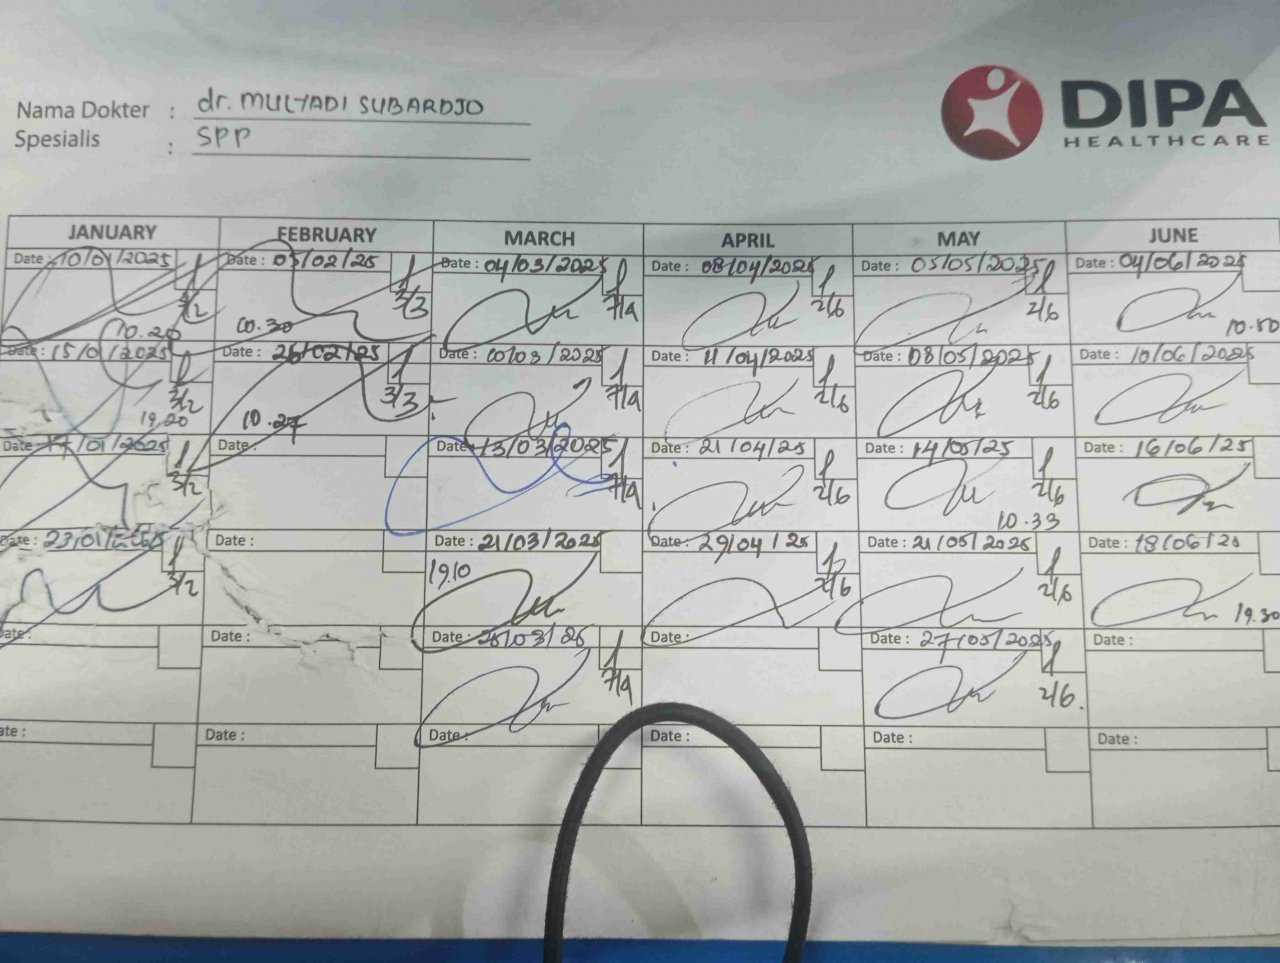 Nama Dokter : dr. MULYADI SUBARDJO
Spesialis : SPP
DIPA
HEALTHCARE
JANUARY FEBRUARY MARCH APRIL MAY JUNE
Date : 10/01/2025 Date : 05/02/25 Date : 04/03/2025 Date : 08/04/2025 Date : 05/05/2025 Date : 04/06/2025
3/2 3/3 7/4 2/6 2/6
10.20 10.30 10.50
Date : 15/01/2025 Date : 26/02/25 Date : 10/03/2025 Date : 11/04/2025 Date : 08/05/2025 Date : 10/06/2025
3/2 3/3 7/4 2/6 2/6
19.20 10.27
Date : 17/01/2025 Date : Date : 13/03/2025 Date : 21/04/25 Date : 14/05/25 Date : 16/06/25
3/2 7/4 2/6 2/6
10.33
Date : 23/01/2025 Date : Date : 21/03/2025 Date : 29/04/25 Date : 21/05/2025 Date : 18/06/25
3/2 19.10 2/6 2/6
19.30
Date : Date : Date : /03/25 Date : Date : 27/05/2025 Date :
7/4 2/6.
Date : Date : Date : Date : Date : Date :